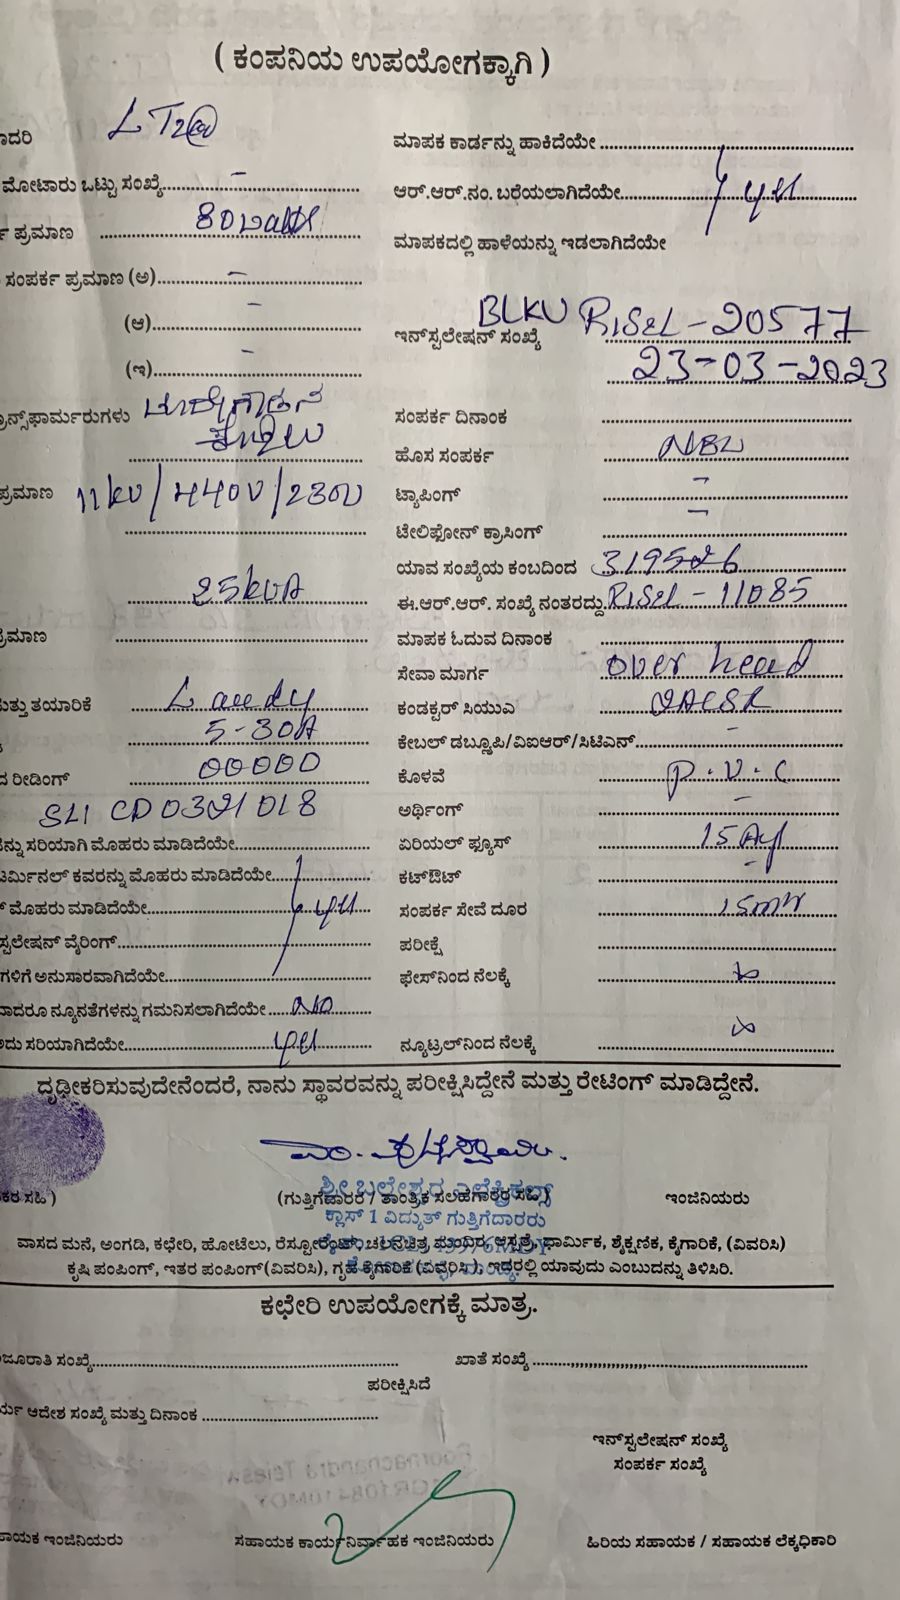 ( ಕಂಪನಿಯ ಉಪಯೋಗಕ್ಕಾಗಿ )
ಾದರಿ LT2@
ಮಾಪಕ ಕಾರ್ಡನ್ನು ಹಾಕಿದೆಯೇ
ಮೋಟಾರು ಒಟ್ಟು ಸಂಖ್ಯೆ -
ಆರ್.ಆರ್.ನಂ. ಬರೆಯಲಾಗಿದೆಯೇ yes
ಪ್ರಮಾಣ 80 watts
ಮಾಪಕದಲ್ಲಿ ಹಾಳೆಯನ್ನು ಇಡಲಾಗಿದೆಯೇ
ಸಂಪರ್ಕ ಪ್ರಮಾಣ (ಅ) -
(ಆ) -
ಇನ್‌ಸ್ಪಲೇಷನ್ ಸಂಖ್ಯೆ BLKV RJSEL-20577
(ಇ) -
23-03-2023
ಾನ್ಸ್‌ಫಾರ್ಮರುಗಳು
ಸಂಪರ್ಕ ದಿನಾಂಕ
ಹೊಸ ಸಂಪರ್ಕ New
ಪ್ರಮಾಣ 11kV/440V/230V
ಟ್ಯಾಪಿಂಗ್ -
ಟೇಲಿಫೋನ್ ಕ್ರಾಸಿಂಗ್ -
ಯಾವ ಸಂಖ್ಯೆಯ ಕಂಬದಿಂದ
25kVA
ಈ.ಆರ್.ಆರ್. ಸಂಖ್ಯೆ ನಂತರದ್ದು RJSEL - 11085
ಪ್ರಮಾಣ
ಮಾಪಕ ಓದುವ ದಿನಾಂಕ
ಸೇವಾ ಮಾರ್ಗ over head
ಮತ್ತು ತಯಾರಿಕೆ
ಕಂಡಕ್ಟರ್ ಸಿಯುಎ
5-30A
ಕೇಬಲ್ ಡಬ್ಲೂಪಿ/ವಿಐಆರ್/ಸಿಟಿಎನ್ -
ದ ರೀಡಿಂಗ್ 00000
ಕೊಳವೆ P.V.C
ಅರ್ಥಿಂಗ್ -
ನ್ನು ಸರಿಯಾಗಿ ಮೊಹರು ಮಾಡಿದೆಯೇ
ಏರಿಯಲ್ ಫ್ಯೂಸ್
ಟರ್ಮಿನಲ್ ಕವರನ್ನು ಮೊಹರು ಮಾಡಿದೆಯೇ
ಕಟ್‌ಔಟ್ -
ಮೊಹರು ಮಾಡಿದೆಯೇ yes
ಸಂಪರ್ಕ ಸೇವೆ ದೂರ
ಸ್ಪಲೇಷನ್ ವೈರಿಂಗ್
ಪರೀಕ್ಷೆ
ಗಳಿಗೆ ಅನುಸಾರವಾಗಿದೆಯೇ
ಫೇಸ್‌ನಿಂದ ನೆಲಕ್ಕೆ
ವಾದರೂ ನ್ಯೂನತೆಗಳನ್ನು ಗಮನಿಸಲಾಗಿದೆಯೇ No
ಅದು ಸರಿಯಾಗಿದೆಯೇ yes
ನ್ಯೂಟ್ರಲ್‌ನಿಂದ ನೆಲಕ್ಕೆ
ದೃಢೀಕರಿಸುವುದೇನೆಂದರೆ, ನಾನು ಸ್ಥಾವರವನ್ನು ಪರೀಕ್ಷಿಸಿದ್ದೇನೆ ಮತ್ತು ರೇಟಿಂಗ್ ಮಾಡಿದ್ದೇನೆ.
ಶ್ರೀ ಬಲೇಶ್ವರ ಎಲೆಕ್ಟ್ರಿಕಲ್ಸ್
ಕರ ಸಹಿ )
(ಗುತ್ತಿಗೆದಾರರ / ತಾಂತ್ರಿಕ ಸಲಹೆಗಾರರ ಸಹಿ )
ಇಂಜಿನಿಯರು
ಕ್ಲಾಸ್ 1 ವಿದ್ಯುತ್ ಗುತ್ತಿಗೆದಾರರು
ವಾಸದ ಮನೆ, ಅಂಗಡಿ, ಕಛೇರಿ, ಹೋಟೆಲು, ರೆಸ್ಟೋರೆಂಟ್, ಚಲನಚಿತ್ರ ಮಂದಿರ, ಆಸ್ಪತ್ರೆ, ಧಾರ್ಮಿಕ, ಶೈಕ್ಷಣಿಕ, ಕೈಗಾರಿಕೆ, (ವಿವರಿಸಿ)
ಕೃಷಿ ಪಂಪಿಂಗ್, ಇತರ ಪಂಪಿಂಗ್(ವಿವರಿಸಿ), ಗೃಹ ಕೈಗಾರಿಕೆ (ವಿವರಿಸಿ), ಇದ್ದರಲ್ಲಿ ಯಾವುದು ಎಂಬುದನ್ನು ತಿಳಿಸಿರಿ.
ಕಛೇರಿ ಉಪಯೋಗಕ್ಕೆ ಮಾತ್ರ.
ಜೂರಾತಿ ಸಂಖ್ಯೆ
ಖಾತೆ ಸಂಖ್ಯೆ
ಪರೀಕ್ಷಿಸಿದೆ
ರ್ಯ ಆದೇಶ ಸಂಖ್ಯೆ ಮತ್ತು ದಿನಾಂಕ
ಇನ್‌ಸ್ಪಲೇಷನ್ ಸಂಖ್ಯೆ
ಸಂಪರ್ಕ ಸಂಖ್ಯೆ
ಾಯಕ ಇಂಜಿನಿಯರು
ಸಹಾಯಕ ಕಾರ್ಯನಿರ್ವಾಹಕ ಇಂಜಿನಿಯರು
ಹಿರಿಯ ಸಹಾಯಕ / ಸಹಾಯಕ ಲೆಕ್ಕಧಿಕಾರಿ